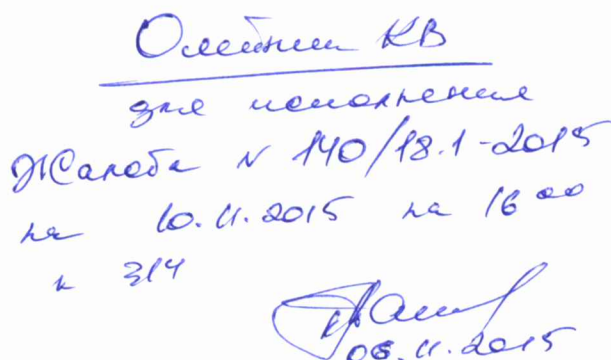 Олейник КВ
для исполнения
Жалоба N 140/18.1-2015
на 10.11.2015 на 16 00
к 314
06.11.2015